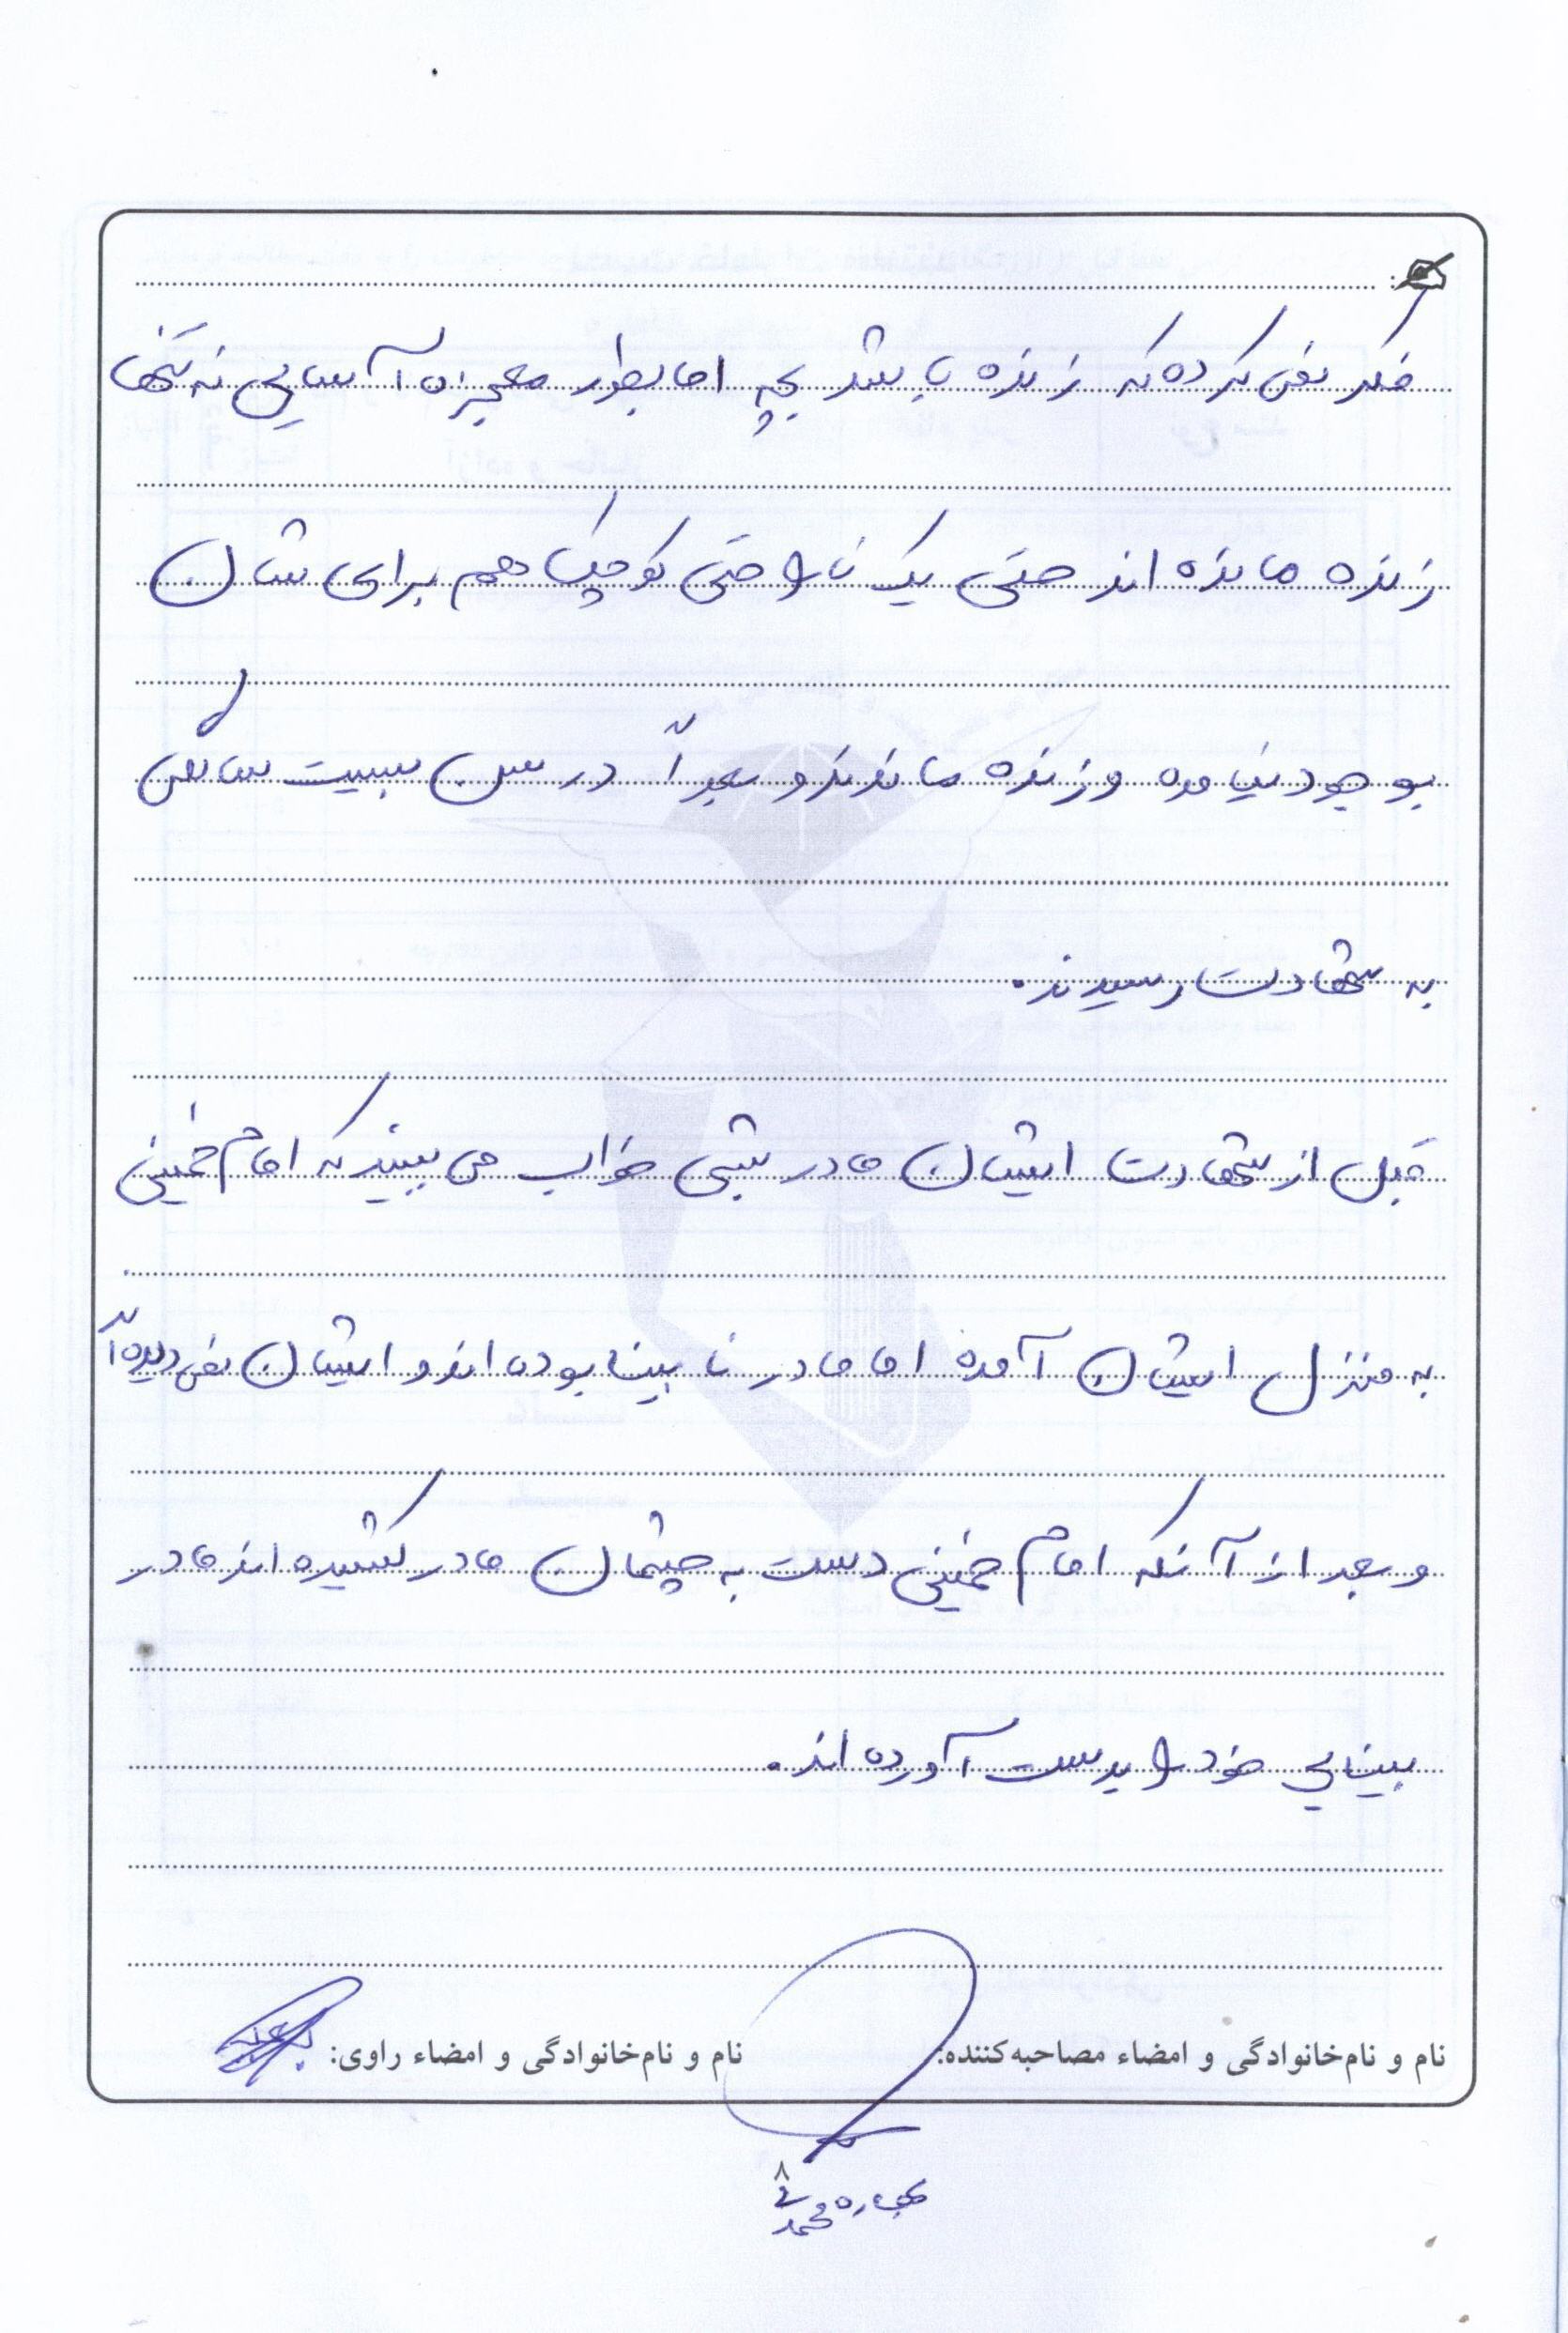 فکر نمی کرده که زنده باشد بچه اما بطور معجزه آسایی نه تنها
زنده مانده اند حتی یک ناراحتی کوچک هم برای شان
بوجود نیامده و زنده ماندند و بعداً در سن بیست سالگی
به شهادت رسیدند.
قبل از شهادت ایشان مادر شبی خواب می بیند که امام خمینی
به منزل ایشان آمده اما مادر نابینا بوده اند و ایشان نمی دیده
و بعد از آنکه امام خمینی دست به چشمان مادر کشیده اند مادر
بینایی خود را بدست آورده اند.
نام و نام‌خانوادگی و امضاء مصاحبه‌کننده: نام و نام‌خانوادگی و امضاء راوی:
۸